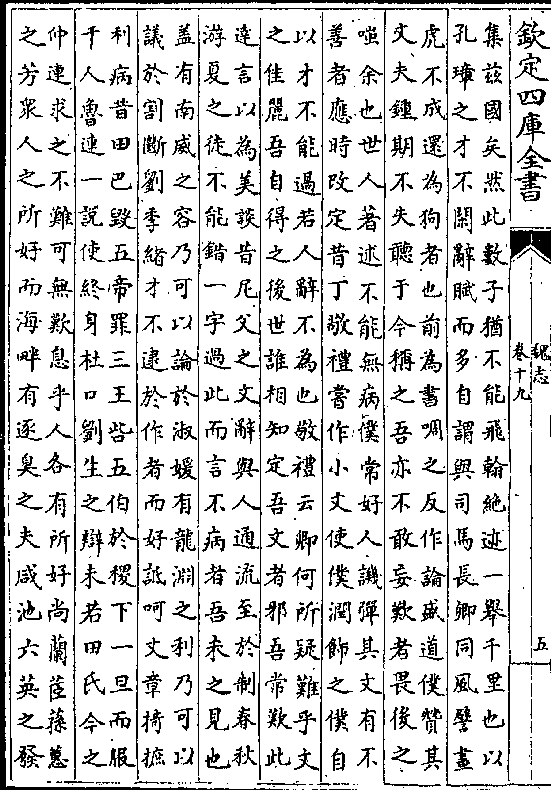 欽定四庫全書
魏志
卷十九
五
集兹國矣然此數子猶不能飛翰絶迹一舉千里也以
孔璋之才不閑辭賦而多自謂與司馬長卿同風譬畫
虎不成還為狗者也前為書啁之反作論盛道僕贊其
文夫鍾期不失聽于今稱之吾亦不敢妄歎者畏後之
嗤余也世人著述不能無病僕常好人譏彈其文有不
善者應時改定昔丁敬禮嘗作小文使僕潤飾之僕自
以才不能過若人辭不為也敬禮云卿何所疑難乎文
之佳麗吾自得之後世誰相知定吾文者邪吾常歎此
達言以為美談昔尼父之文辭與人通流至於制春秋
游夏之徒不能錯一字過此而言不病者吾未之見也
盖有南威之容乃可以論於淑媛有龍淵之利乃可以
議於割斷劉季緒才不逮於作者而好詆呵文章掎摭
利病昔田巴毁五帝罪三王呰五伯於稷下一旦而服
千人魯連一說使終身杜口劉生之辯未若田氏今之
仲連求之不難可無歎息乎人各有所好尚蘭茝蓀蕙
之芳衆人之所好而海畔有逐臭之夫咸池六英之發